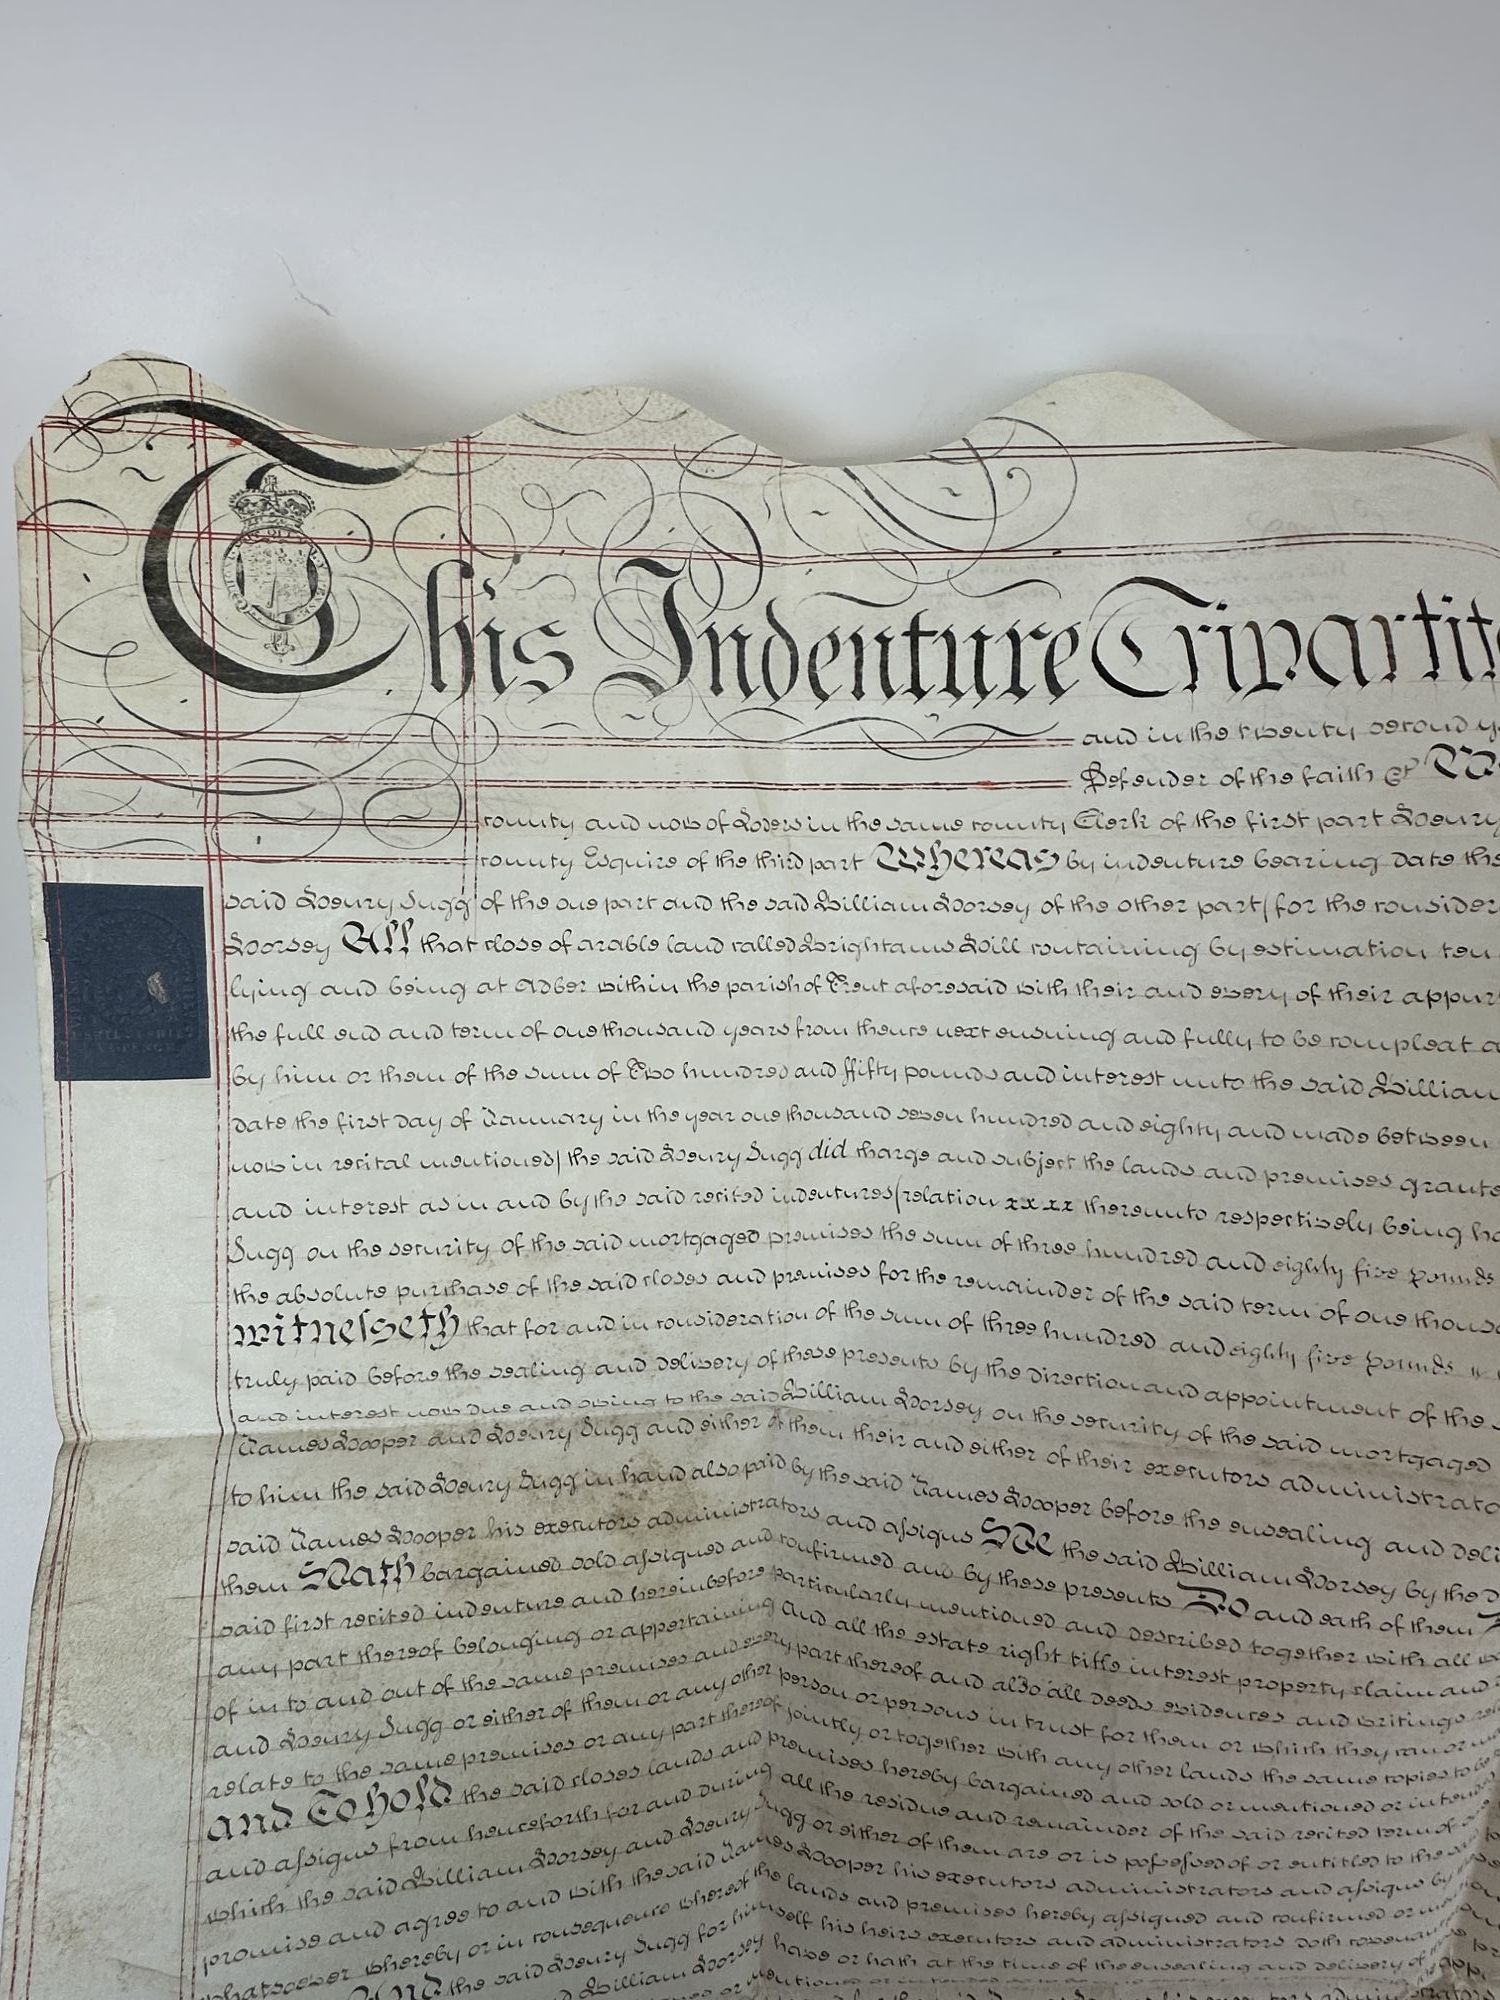 This Indenture Tripartite
and in the twenty second
Defender of the faith &c
county and now of Loders in the same county Clerk of the first part Henry
county Esquire of the third part Whereas by indenture bearing date the
said Henry Sugg of the one part and the said William Dorsey of the other part (for the consider
Dorsey All that close of arable land called Brightams Hill containing by estimation ten
lying and being at Adber within the parish of Trent aforesaid with their and every of their appurt
the full end and term of one thousand years from thence next ensuing and fully to be compleat a
by him or them of the sum of Two hundred and ffifty pounds and interest unto the said William
date the first day of January in the year one thousand seven hundred and eighty and made between
now in recital mentioned) the said Henry Sugg did charge and subject the lands and premises grante
and interest as in and by the said recited indentures (relation xx xx thereunto respectively being ha
Sugg on the security of the said mortgaged premises the sum of three hundred and eighty five pounds
the absolute purchase of the said closes and premises for the remainder of the said term of one thous
witnesseth that for and in consideration of the sum of three hundred and eighty five pounds
truly paid before the sealing and delivery of these presents by the direction and appointment of the s
and interest now due and owing to the said William Dorsey on the security of the said mortgaged
James Hooper and Henry Sugg and either of them their and either of their executors administrato
to him the said Henry Sugg in hand also paid by the said James Hooper before the ensealing and deli
said James Hooper his executors administrators and assigns He the said William Dorsey by the d
them Hath bargained sold assigned and confirmed and by these presents Do and each of them
said first recited indenture and hereinbefore particularly mentioned and described together with all w
any part thereof belonging or appertaining And all the estate right title interest property claim and
of in to and out of the same premises and every part thereof and also all deeds evidences and writings
and Henry Sugg or either of them or any other person or persons in trust for them or which they can or
relate to the same premises or any part thereof jointly or together with any other lands the same copies to be
and To hold the said closes lands and premises hereby bargained and sold or mentioned or intended
and assigns from henceforth for and during all the residue and remainder of the said recited term of
which the said William Dorsey and Henry Sugg or either of them are or is possessed of or entitled to the
promise and agree to and with the said James Hooper his executors administrators and assigns by
whatsoever whereby or in consequence whereof the lands and premises hereby assigned and confirmed or
And the said Henry Sugg for himself his heirs executors and administrators doth
William Dorsey have or hath at the time of the ensealing and delivery of